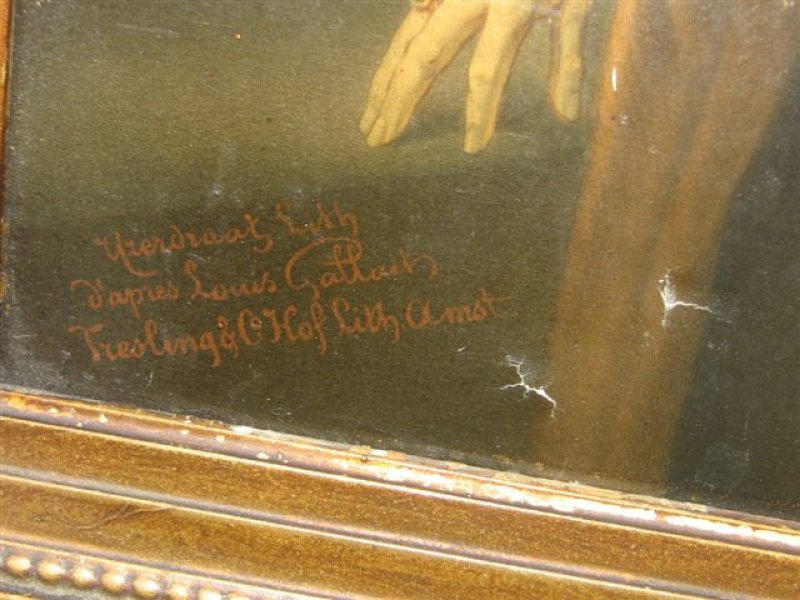 Uierdraat, Lith
d'apres Louis Gallait,
Tresling & Co Hof Lith. Amst.